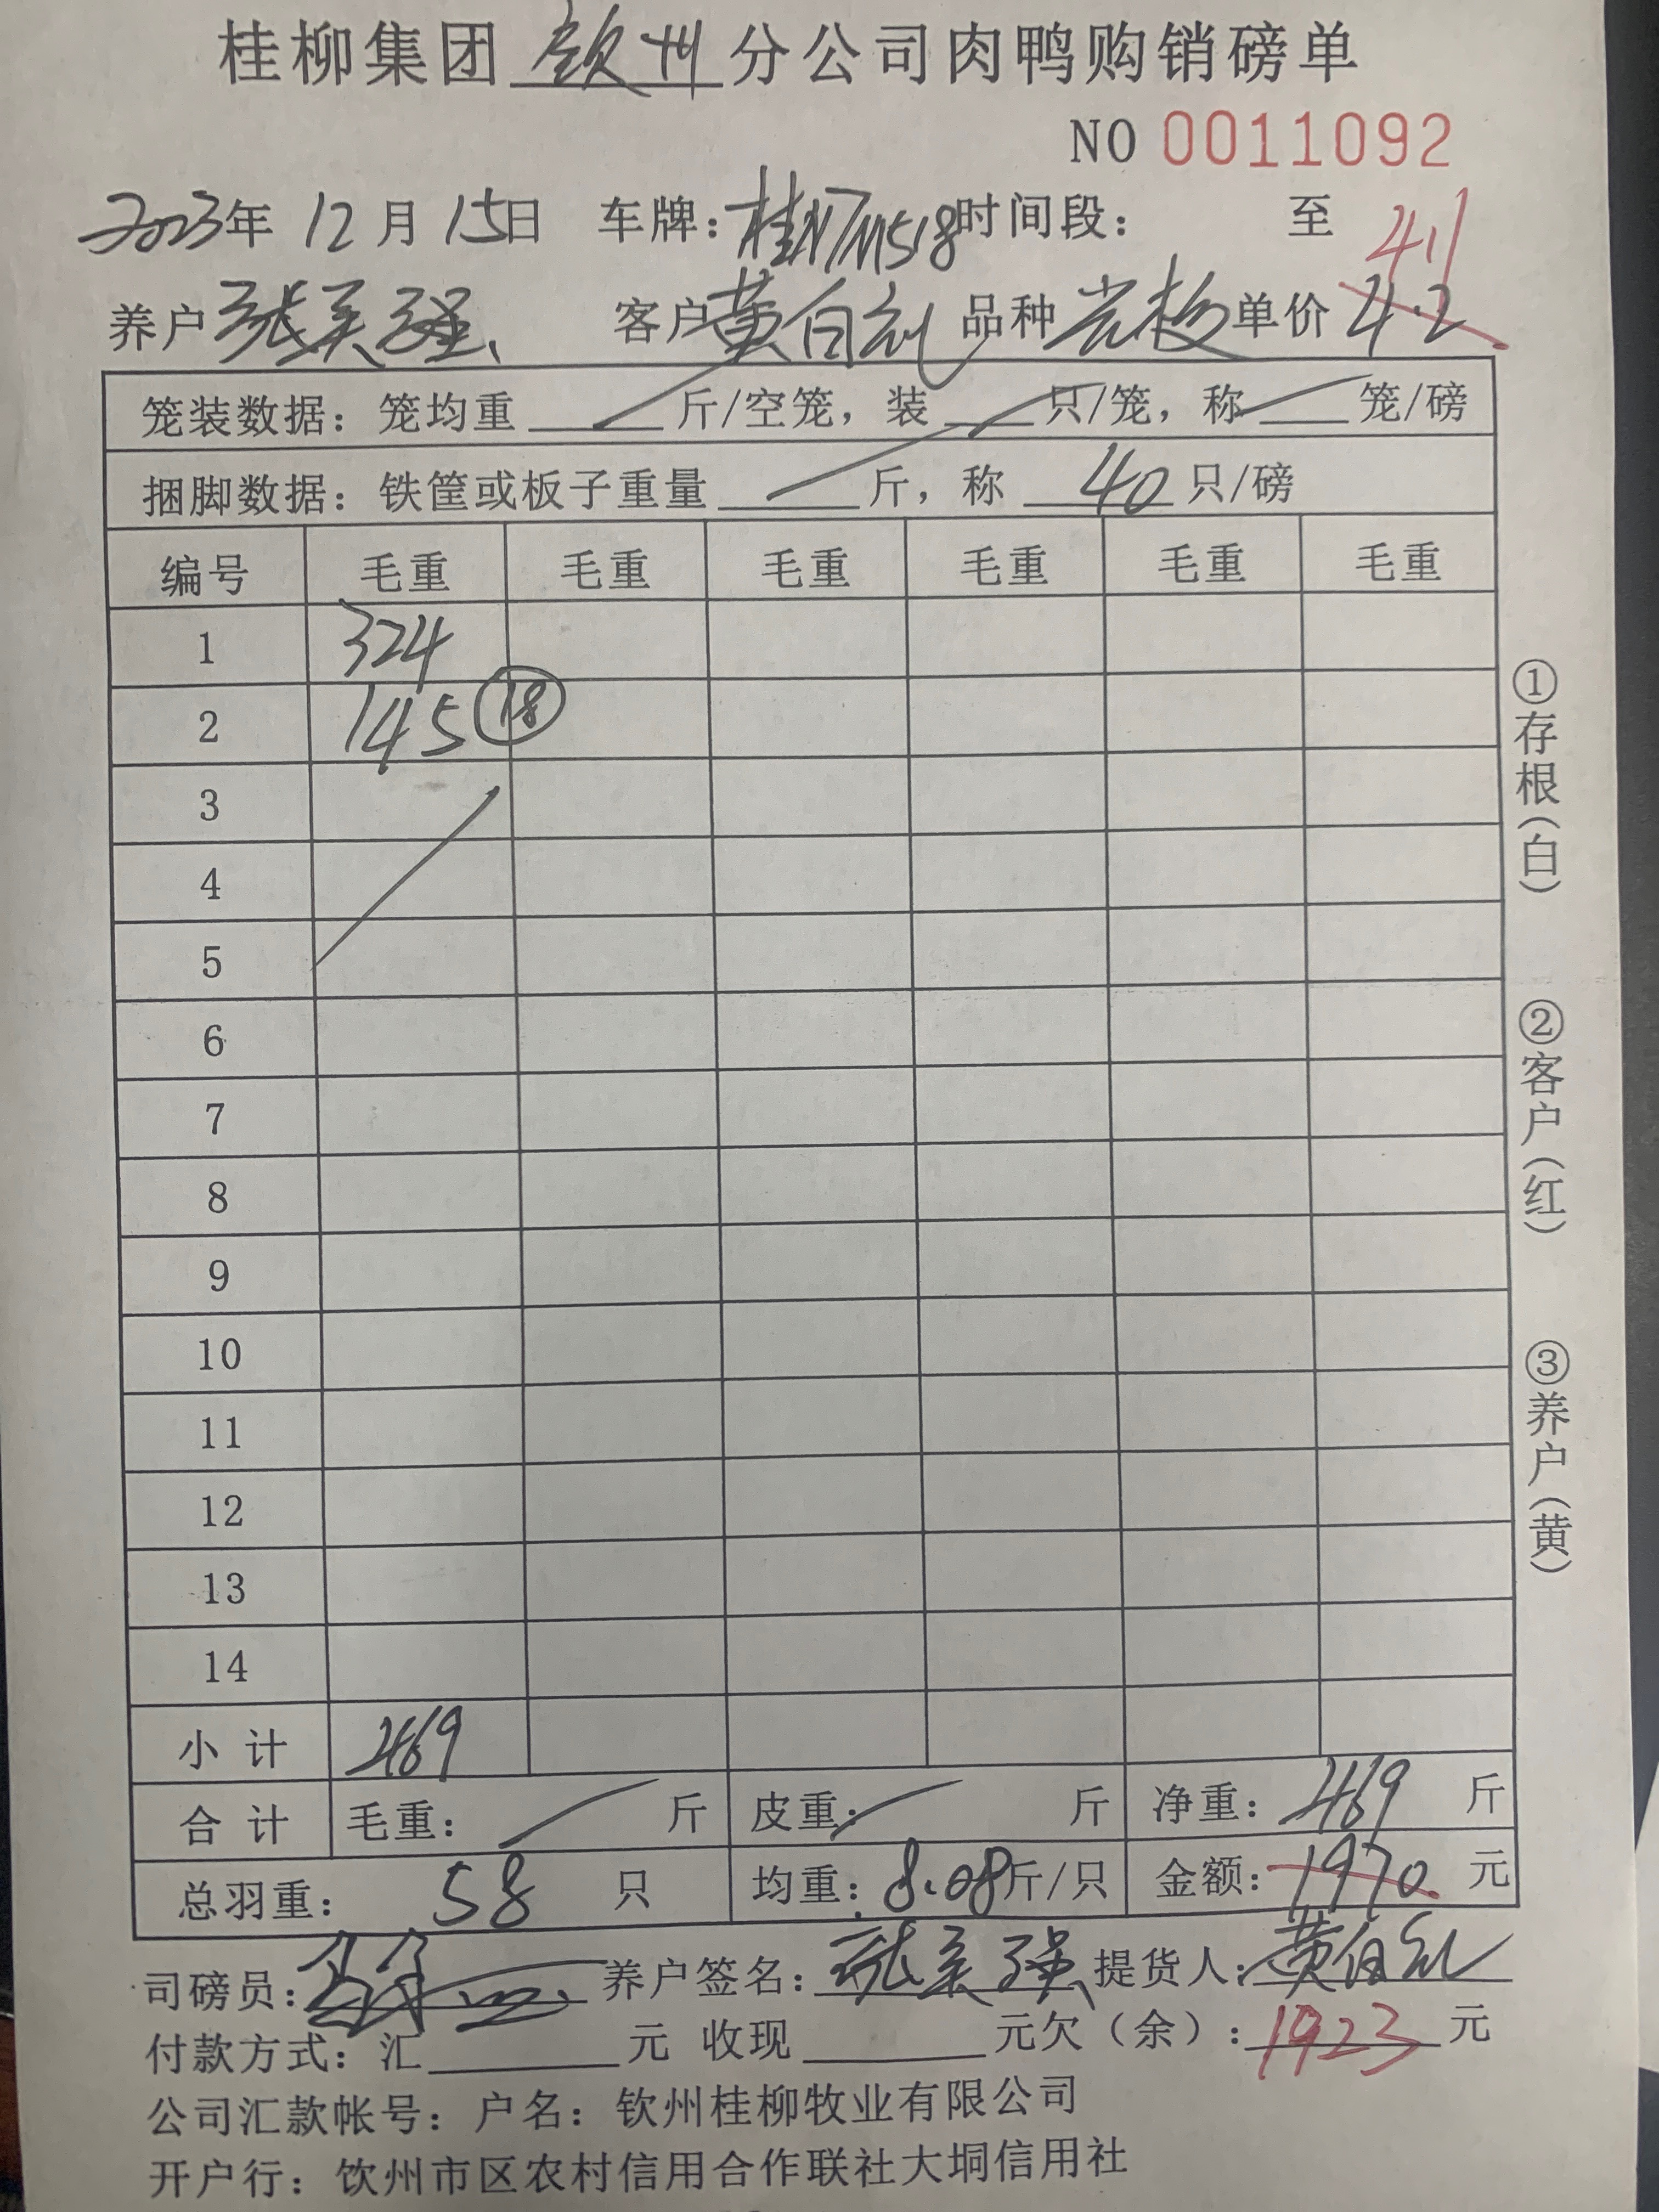 桂柳集团 钦州 分公司肉鸭购销磅单
NO 0011092
2023年 12月 15日 车牌：桂N7M518 时间段： 至
4.1
养户 张美强 客户 黄白礼 品种 单价 4.2
笼装数据：笼均重 斤/空笼，装 只/笼，称 笼/磅
捆脚数据：铁筐或板子重量 斤，称 40 只/磅
编号 毛重 毛重 毛重 毛重 毛重 毛重
1 324
2 145 ⑱
3
4
5
6
7
8
9
10
11
12
13
14
小计 469
合计 毛重： 斤 皮重： 斤 净重：469 斤
总羽重：58 只 均重：8.08斤/只 金额：1970 元
司磅员： 养户签名：张美强 提货人：黄白礼
付款方式：汇 元 收现 元欠（余）：1923 元
公司汇款帐号：户名：钦州桂柳牧业有限公司
开户行：钦州市区农村信用合作联社大垌信用社
①存根（白）
②客户（红）
③养户（黄）